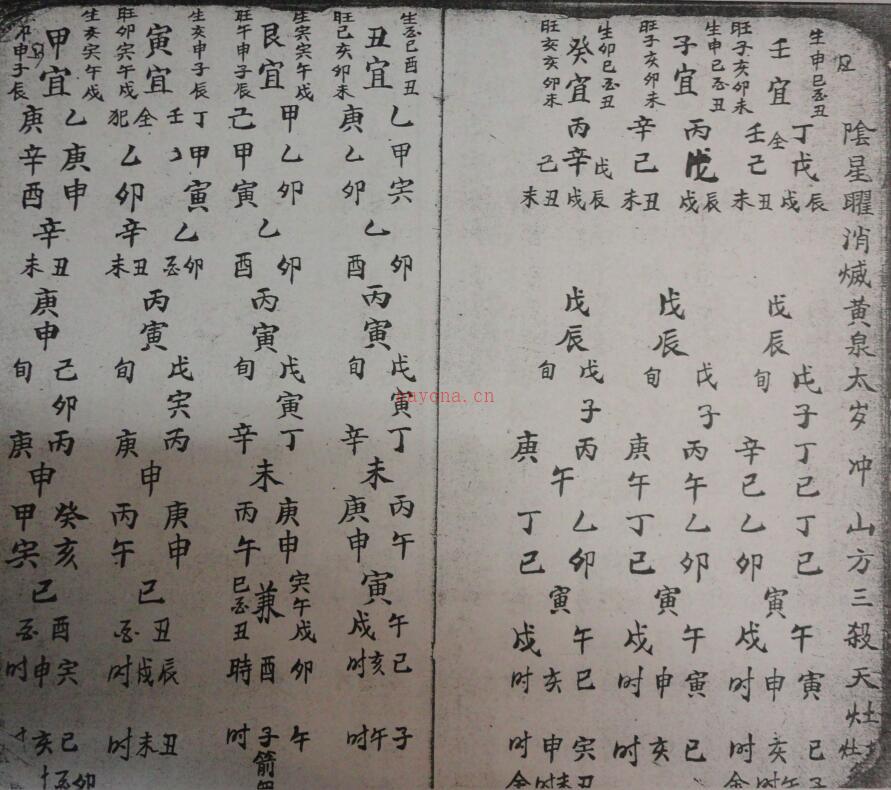 陰星曜消滅黃泉太岁冲山方三殺天灶
生申巳酉丑
壬宜
旺子亥卯未
丁戊辰戌
全
壬己丑未
戊辰
戊子旬
丁巳
辛巳
丁巳
乙卯
寅
午戌
寅申时
巳亥时
生申巳酉丑
子宜
旺子亥卯未
丙戊辰戌
辛己丑未
戊辰
戊子旬
丙午
庚午
乙卯
丁巳
寅
午戌
寅申时
巳亥时
生卯巳酉丑
癸宜
旺亥亥卯未
丙辛
戊辰戌
己丑未
戊辰
戊子旬
丙庚
午
乙卯
丁巳
寅
午戌
巳亥时
寅申时
丑未时
生酉巳酉丑
丑宜
旺巳亥卯未
乙甲寅
庚乙卯
乙
卯酉
丙寅
戊寅旬
丁辛
未
丙午
庚申
寅
午戌
巳亥时
子午时
生寅寅午戌
艮宜
旺午申子辰
甲乙卯
己甲寅
乙
卯酉
丙寅
戊寅旬
丁辛
未
庚申
丙午
寅午戌
兼
巳酉丑
卯酉時
午子时
箭
生亥申子辰
寅宜
旺卯寅午戌
丁
壬
甲寅
全
犯
乙卯
乙
卯酉
辛
丑未
丙寅
戊寅旬
丙庚
申
庚申
丙午
巳
丑酉
辰戌时
丑未时
生亥寅午戌
甲宜
申子辰
乙庚申
庚辛酉
辛
丑未
庚申
己卯旬
丙庚
申
癸亥
甲寅
巳
酉
寅申时
巳亥
卯酉